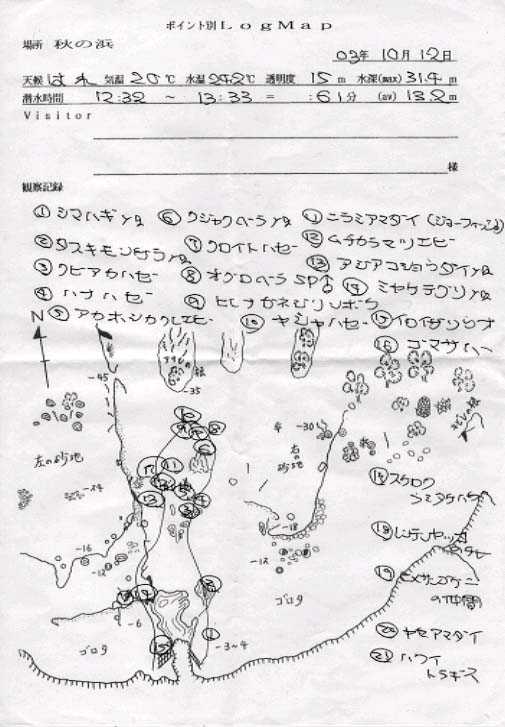 ポイント別LogMap
場所 秋の浜
03年 10月 12日
天候 はれ 気温 20℃ 水温 24.2℃ 透明度 15m 水深(max) 31.4m
潜水時間 12:32 ～ 13:33 = :61分 (av) 13.2m
Visitor
様
観察記録
① シマハギyg ⑥ クジャクベラyg ⑪ ニラミアマダイ (ジョーフィッシュ)
② タスキモンガラyg ⑦ クロイトハゼ ⑫ ムチカラマツエビ
③ クビアカハゼ ⑧ オグロベラSP♂ ⑬ アジアコショウダイyg
④ ハナハゼ ⑨ ヒレナガネジリンボウ ⑭ ミヤケテグリyg
⑤ アカホシカクレエビ ⑩ ヤシャハゼ ⑮ イロイザリウオ
⑯ ゴマサバ
N
-45
-35
-30
左の砂地
右の砂地
-24
-18
-16
-12
-12
-6
-3~4
ゴロタ
ゴロタ
⑱ レンテンヤッコ
の仲間
⑳ ヤセアマダイ
㉑ ハワイトラギス